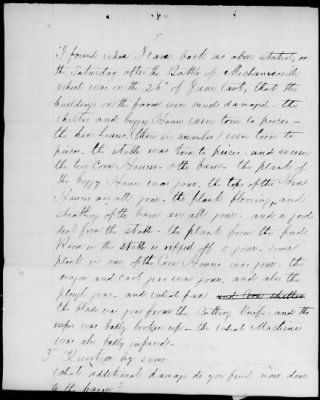 5
"I found when I came back as above stated, on
the Saturday after the Battle of Mechanicsville
which was on the 26th of June last, that the
buildings on the farm were much damaged - the
shelter and buggy House were torn to pieces -
the hen houses (three in number) were torn to
pieces the stable was torn to pieces - and
the two Corn Houses - & the barn - the plank of
the buggy House was gone - the top of the Hen
Houses are all gone - the plank flooring, and
sheathing of the barn are all gone - and a good
deal from the stable - the plank from the feed
Room in the stable is ripped off & gone - some
plank in one of the Corn Houses was gone - the
wagon and cart gear was gone, and also the
plough gear - and wheat fan
the blade was gone from the Cutting Knife - and the
was badly broken up - the wheat Machine
was also badly injured -
3d Question by same
What additional damage do you find was done
to the farm?